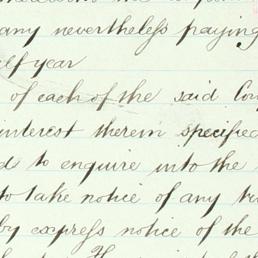 any nevertheless paying
lf year
of each of the said Con
interest therein specified
d to enquire into the
to take notice of any tru
by express notice of the